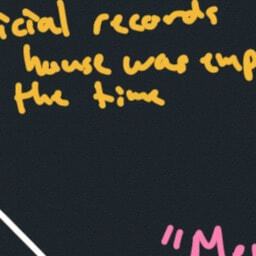 icial records
house was emp
the time
"Me